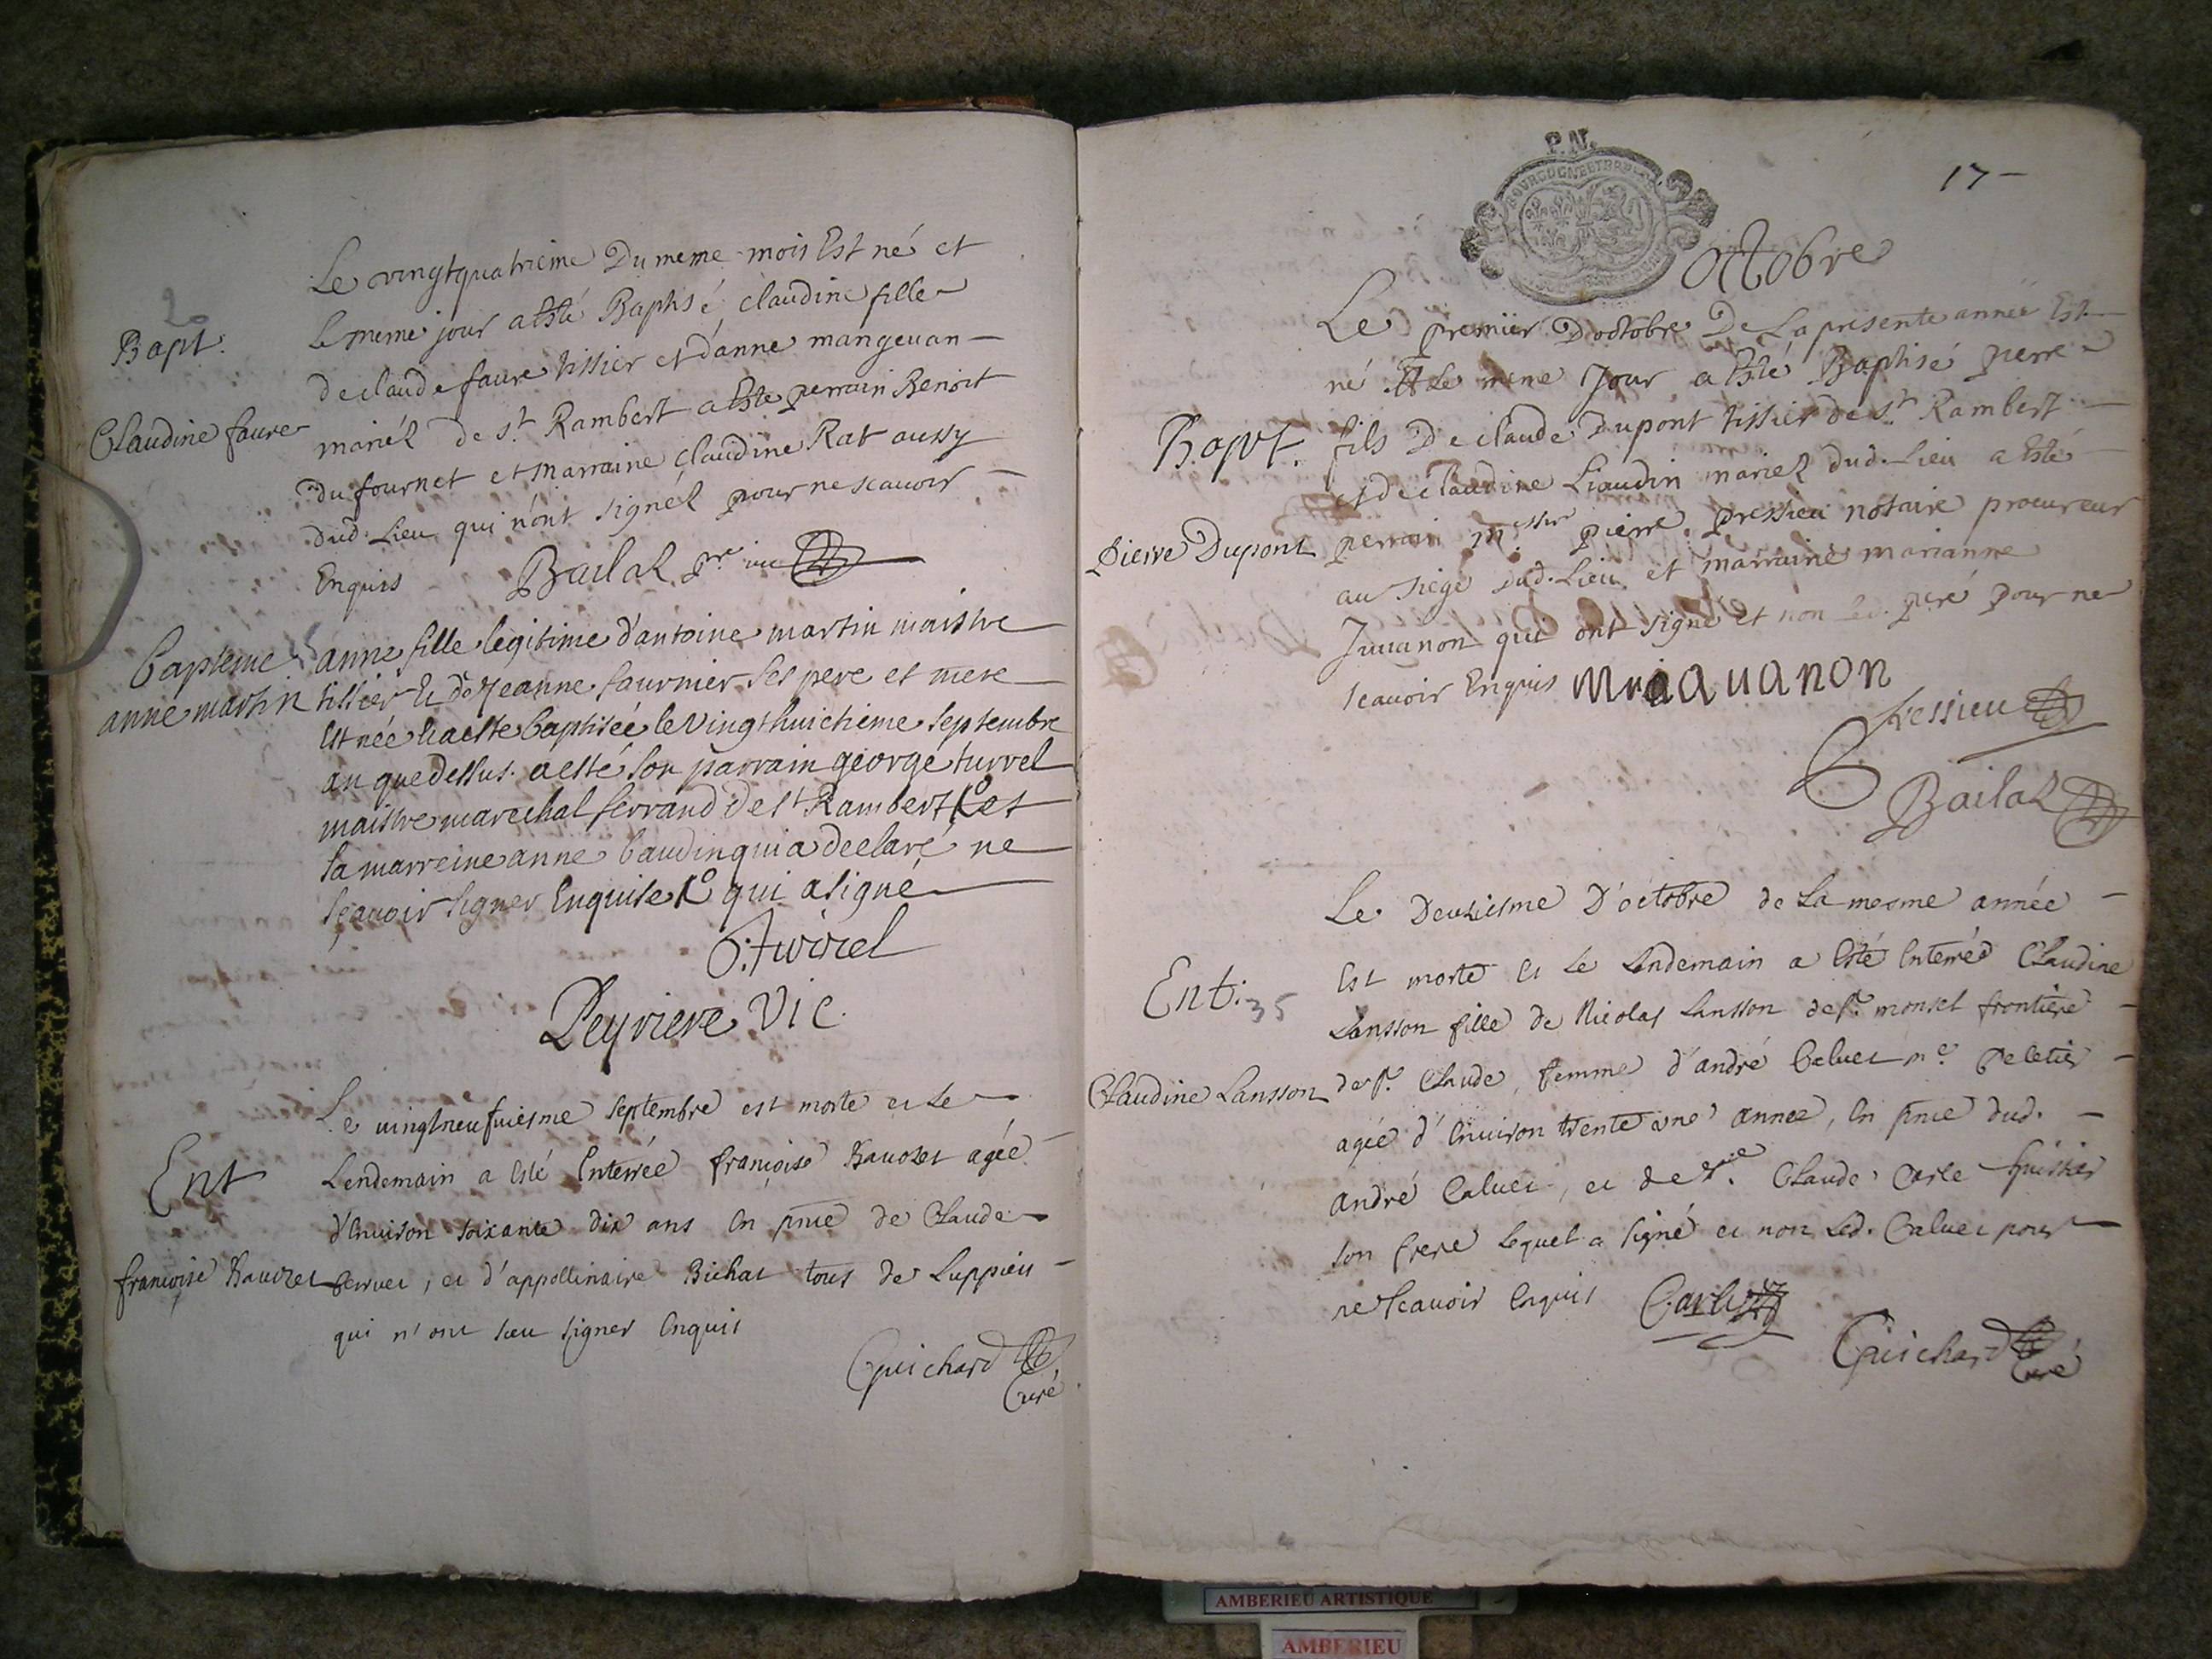 20
Bapt.
Claudine faure
Le vingtquatrieme Du meme mois Est né et
le meme jour a esté Baptisé claudine fille
de claude faure tissier et d'anne mangeuan
mariéz de st Rambert a esté perrain Benoit
du fournet et marraine claudine Rat aussy
dud. Lieu qui n'ont signéz pour ne scauoir
Enquis Bailaz pre vic
Bapteme
anne martin
anne fille legitime d'antoine martin maistre
tissier et de Jeanne fournier ses pere et mere
est née et a esté baptisée le vingthuichieme septembre
an que dessus. a esté son parrain george turrel
maistre marechal ferrand de st Rambert et
la marreine anne baudin qui a declaré ne
sçauoir signer Enquise qui a signé
G. turrel
Peyriere Vic.
Ent
françoise Rauozet
Le uingtneufuiesme septembre est morte et le
Lendemain a esté Enterrée françoise Rauozet agée
d'enuiron soixante dix ans en pnce de Claude
seruet, et d'appollinaire Bichat tous de Luppieu
qui n'ont sceu signer enquis
Guichard
Curé
P. Nt.
BOURGOGNE ET BRESSE
17
Octobre
Bapt.
Pierre Dupont
Le premier D'octobre De La presente année Est
né Et le meme Jour a esté Baptisé pierre
fils De claude Dupont tissier de st Rambert
et de claudine Liaudin mariez dud. Lieu a esté
perrain messire pierre pressieu notaire procureur
au siege dud. Lieu et marraine marianne
Juuanon qui ont signé et non led. peré pour ne
scauoir Enquis Mria uanon
Pressieu
Bailaz
Ent. 35
Claudine Lansson
Le Deuxiesme D'octobre de La mesme année
Est morte et Le Lendemain a esté enterréé Claudine
Lansson fille de Nicolas Lansson de st. monset frontiere
de st. Claude, femme d'andré Caluet me. Peletier
agée d'enuiron trente une année, en pnce dud.
andré Caluet, et de Claude Carle huissier
son frere lequel a signé et non Led. Caluet pour
ne scauoir enquis Carle
Guichard
Curé
AMBERIEU ARTISTIQUE
AMBERIEU